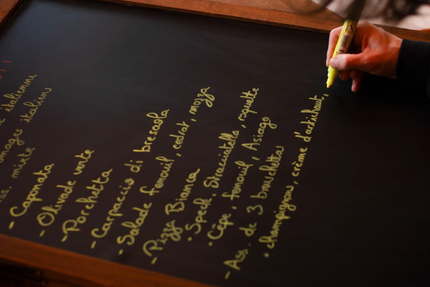 italienne
mages italien
mixte
- Caponata
- Olivade verte
- Porchetta
- Carpaccio di bresaola
- Salade fenouil, cedrat, mozza
- Pizza Bianca
. Speck, Stracciatella, roquette
. Cepe, fenouil, Asiago
- Ass. de 3 bruschettas
. champignon, crème d'artichaut,